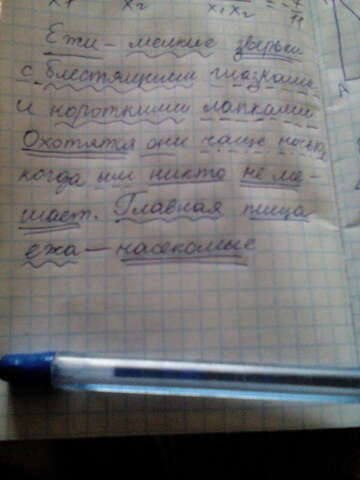 x₁ x₂ x₁x₂ = -7/11
Ежи – мелкие зверьки
с блестящими глазками
и короткими лапками
Охотятся они чаще ночью,
когда им никто не ме-
шает. Главная пища
ежа – насекомые
A